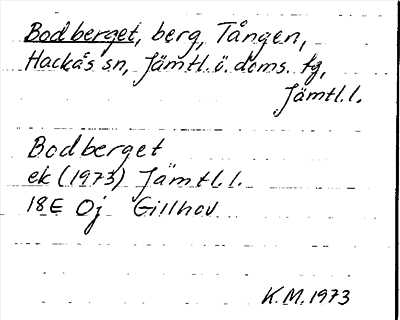 Bodberget, berg, Tången,
Hackås sn, Jämtl.ö.doms. tg,
Jämtl.l.
Bodberget
ek (1973) Jämtl.l.
18E Oj Gillhov
K.M.1973